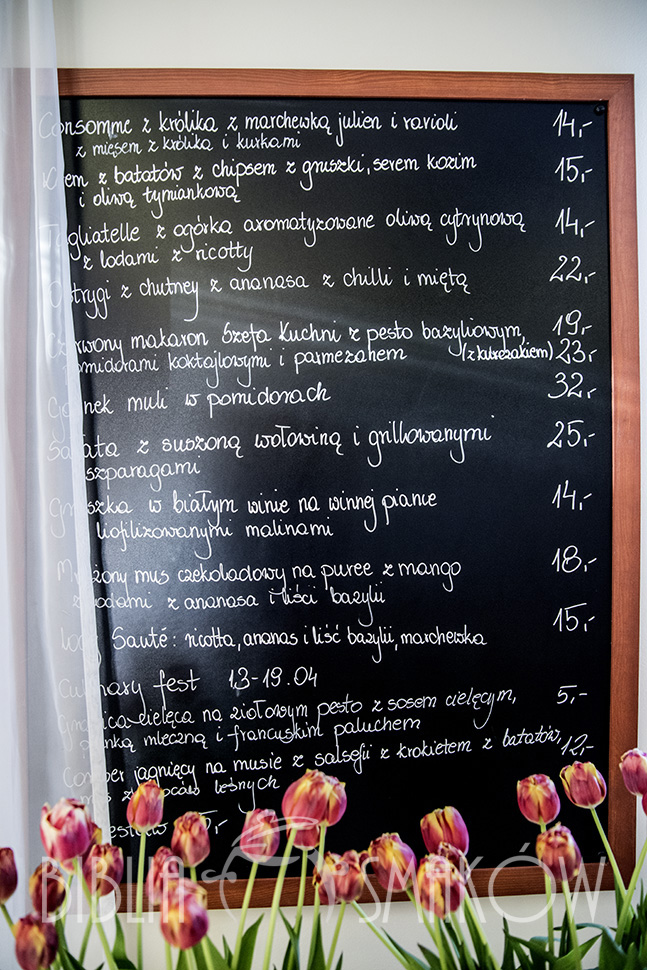 Consomme z królika z marchewką julien i ravioli 14,-
z mięsem z królika i kurkami
Krem z batatów z chipsem z gruszki, serem kozim 15,-
i oliwą tymiankową
Tagliatelle z ogórka aromatyzowane oliwą cytrynową 14,-
z lodami z ricotty
Ostrygi z chutney z ananasa z chilli i miętą 22,-
Czerwony makaron Szefa Kuchni z pesto bazyliowym, 19,-
pomidorami koktajlowymi i parmezanem (z kurczakiem) 23,-
Garnek muli w pomidorach 32,-
Sałata z suszoną wołowiną i grillowanymi 25,-
szparagami
Gruszka w białym winie na winnej piance 14,-
liofilizowanymi malinami
Mrożony mus czekoladowy na puree z mango 18,-
z lodami z ananasa i liści bazylii
Lody Sauté: ricotta, ananas i liść bazylii, marchewka 15,-
Culinary fest 13-19.04
Grasica cielęca na ziołowym pesto z sosem cielęcym, 5,-
pianką mleczną i francuskim paluchem
jagnięcy na musie z salsefii z krokietem z batatów, 12,-
leśnych
5,-
BIBLIA SMAKÓW